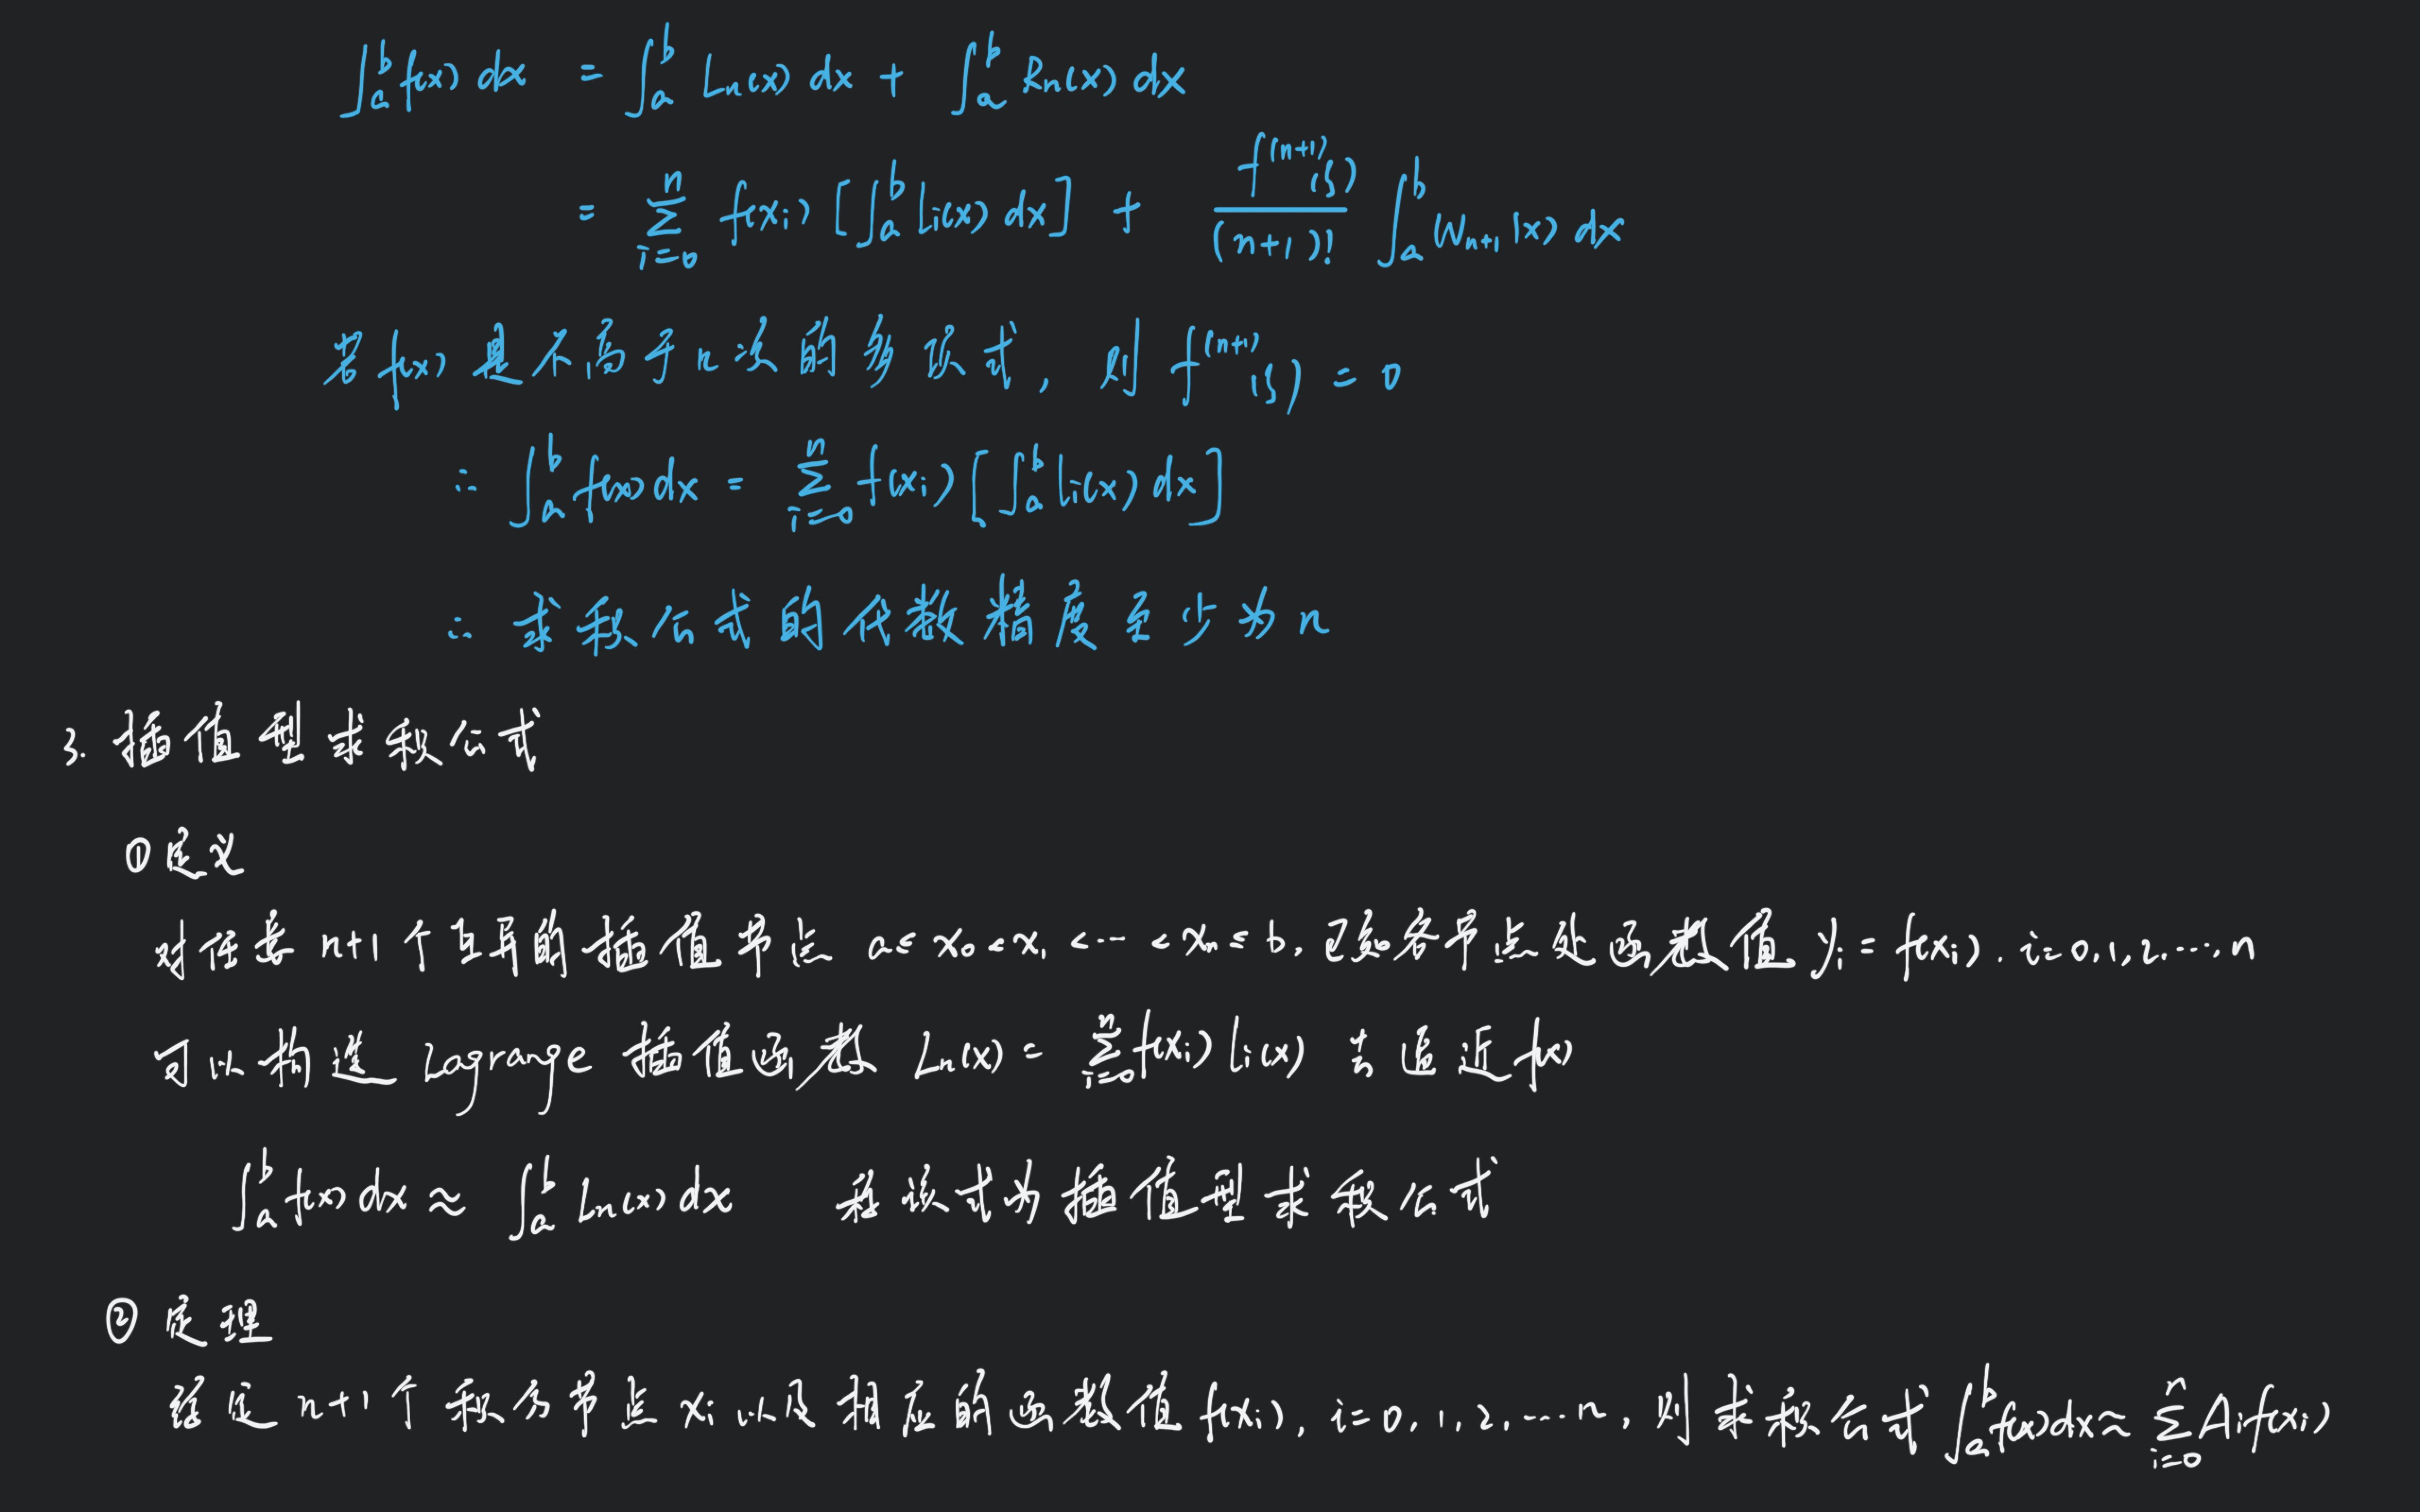 ∫_a^b f(x) dx = ∫_a^b Ln(x) dx + ∫_a^b Rn(x) dx
= Σ_{i=0}^n f(xi) [∫_a^b li(x) dx] + f^(n+1)(ξ)/(n+1)! ∫_a^b W_{n+1}(x) dx
若 f(x) 是不高于n次的多项式, 则 f^(n+1)(ξ) = 0
∴ ∫_a^b f(x) dx = Σ_{i=0}^n f(xi) [∫_a^b li(x) dx]
∴ 求积公式的代数精度至少为 n
3. 插值型求积公式
① 定义
对任意 n+1 个互异的插值节点 a≤x₀<x₁<…<xₙ≤b, 已知各节点处函数值 yi = f(xi). i=0,1,2,…,n
可以构造 Lagrange 插值函数 Ln(x) = Σ_{i=0}^n f(xi) li(x) 去逼近 f(x)
∫_a^b f(x) dx ≈ ∫_a^b Ln(x) dx 称该式为插值型求积公式
② 定理
给定 n+1 个积分节点 xi 以及相应的函数值 f(xi), i=0,1,2,…n, 则求积公式 ∫_a^b f(x)dx ≈ Σ_{i=0}^n Ai f(xi)